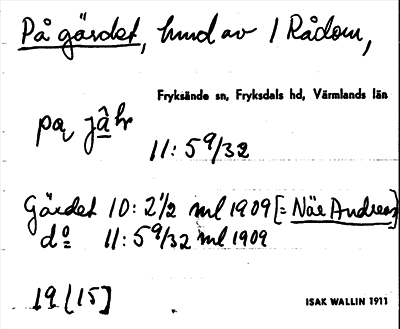 På gärdet, hmd av 1 Rådom,
Fryksände sn, Fryksdals hd, Värmlands län
på jâhr
11: 5 9/32
Gärdet 10: 2 1/2 ml 1909 [= Näe Andreas]
d:o 11: 5 9/32 ml 1909
19 [15]
ISAK WALLIN 1911